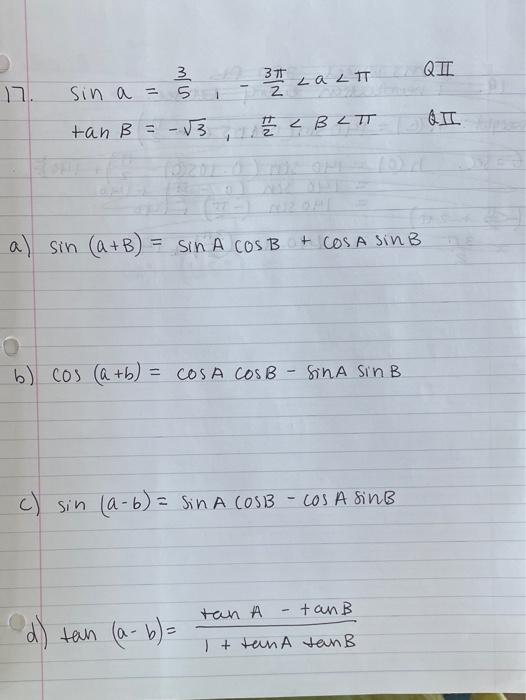 17. sin a = 3/5, - 3π/2 < a < π QII
tan B = -√3, π/2 < B < π QII
a) sin (a+B) = sin A cos B + cos A sin B
b) cos (a+b) = cos A cos B - sin A sin B
c) sin (a-b) = sin A cos B - cos A sin B
d) tan (a-b) = tan A - tan B / 1 + tan A tan B